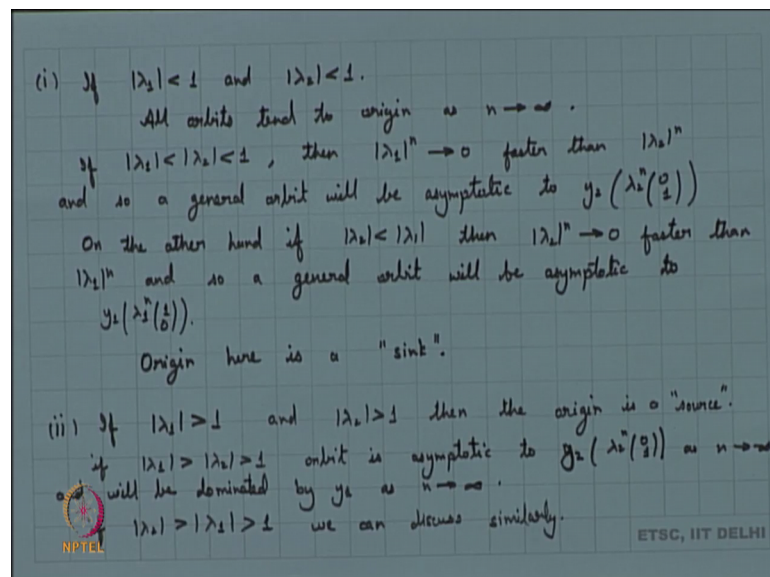 (i) If |λ₁| < 1 and |λ₂| < 1.
All orbits tend to origin as n → ∞.
If |λ₁| < |λ₂| < 1, then |λ₁|ⁿ → 0 faster than |λ₂|ⁿ
and so a general orbit will be asymptotic to y₂ (λ₂ⁿ(0 1))
On the other hand if |λ₂| < |λ₁| then |λ₂|ⁿ → 0 faster than
|λ₁|ⁿ and so a general orbit will be asymptotic to
y₁(λ₁ⁿ(1 0)).
Origin here is a "sink".
(ii) If |λ₁| > 1 and |λ₂| > 1 then the origin is a "source".
if |λ₁| > |λ₂| > 1 orbit is asymptotic to y₂ (λ₂ⁿ(0 1)) as n → -∞
and will be dominated by as n → ∞.
|λ₂| > |λ₁| > 1 we can discuss similarly.
NPTEL
ETSC, IIT DELHI